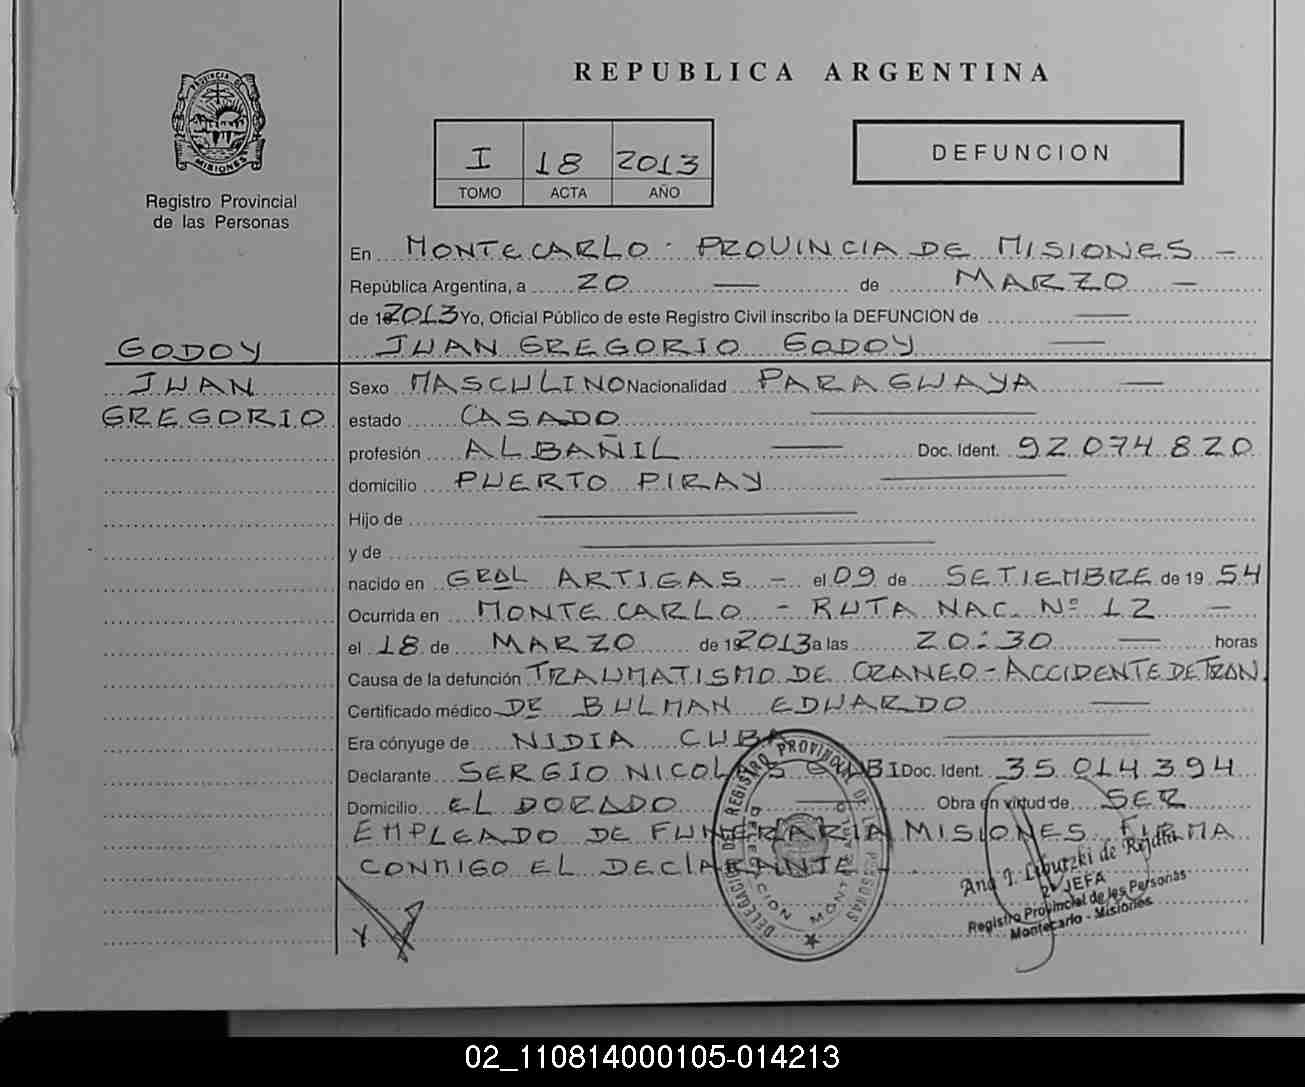 REPUBLICA ARGENTINA
PROVINCIA DE
MISIONES
Registro Provincial
de las Personas
I 18 2013
TOMO ACTA AÑO
DEFUNCION
En MONTECARLO - PROVINCIA DE MISIONES -
República Argentina, a 20 — de MARZO -
de 2013 Yo, Oficial Público de este Registro Civil inscribo la DEFUNCION de —
GODOY JUAN GREGORIO GODOY —
JUAN Sexo MASCULINO Nacionalidad PARAGUAYA —
GREGORIO estado CASADO —
profesión ALBAÑIL — Doc. Ident. 92.074.820
domicilio PUERTO PIRAY —
Hijo de —
y de —
nacido en GRAL ARTIGAS - el 09 de SETIEMBRE de 1954
Ocurrida en MONTECARLO - RUTA NAC. Nº 12 -
el 18 de MARZO de 2013 a las 20:30 — horas
Causa de la defunción TRAUMATISMO DE CRANEO - ACCIDENTE DE TRAN.
Certificado médico DE BULMAN EDUARDO —
Era cónyuge de NIDIA CUBA —
Declarante SERGIO NICOLAS Doc. Ident. 35.014.394
Domicilio EL DORADO — Obra en virtud de SER
EMPLEADO DE FUNERARIA MISIONES FIRMA
CONMIGO EL DECLARANTE -
DELEGACION MONTECARLO
REGISTRO PROVINCIAL DE LAS PERSONAS
Ana I. de
2º JEFA
Registro Provincial de las Personas
Montecarlo - Misiones
02_110814000105-014213